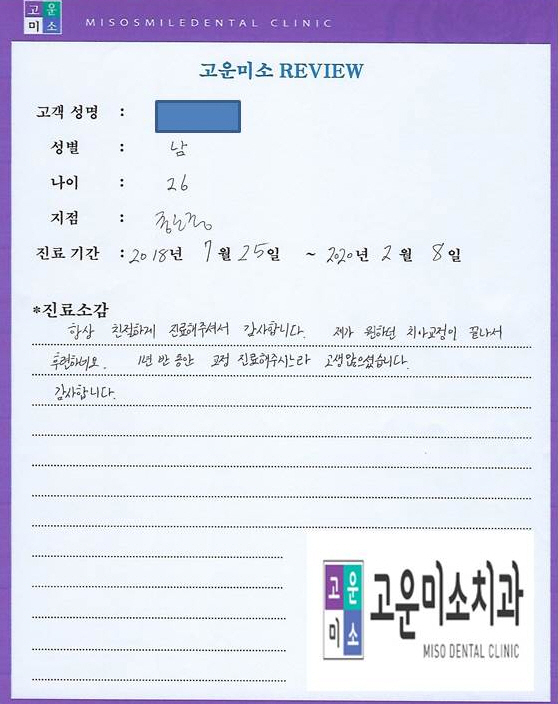 고운
미소
MISOSMILEDENTAL CLINIC
고운미소 REVIEW
고객 성명 :
성별 : 남
나이 : 26
지점 :
진료 기간 : 2018년 7월 25일 ~ 2020년 2월 8일
*진료소감
항상 친절하게 진료해주셔서 감사합니다. 제가 원하던 치아교정이 끝나서
후련하네요. 1년 반 동안 교정 진료해주시느라 고생많으셨습니다.
감사합니다.
고운
미소
고운미소치과
MISO DENTAL CLINIC